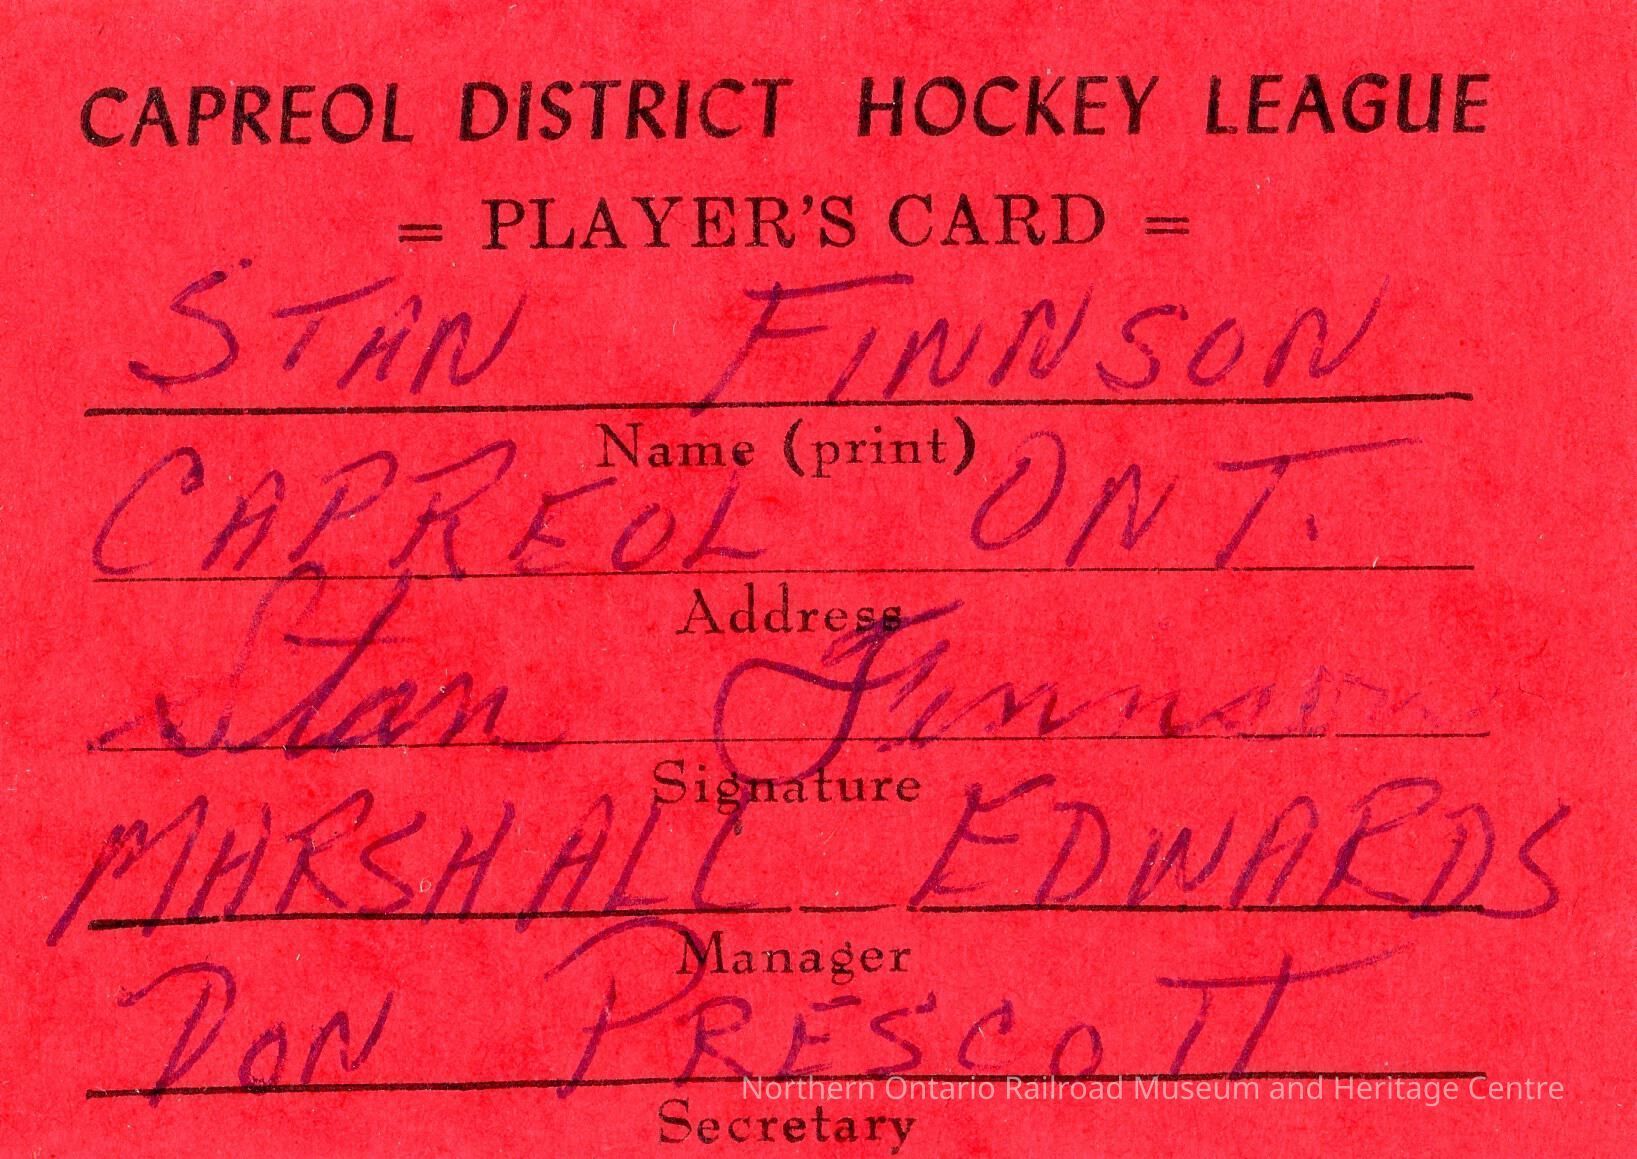 CAPREOL DISTRICT HOCKEY LEAGUE
= PLAYER'S CARD =
STAN FINNSON
Name (print)
CAPREOL ONT.
Address
Stan Finnson
Signature
MARSHALL EDWARDS
Manager
DON PRESCOTT
Northern Ontario Railroad Museum and Heritage Centre
Secretary